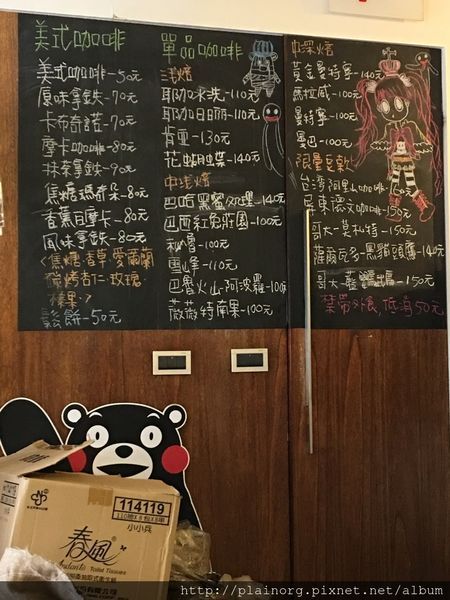 美式咖啡
美式咖啡-50元
原味拿鐵-70元
卡布奇諾-70元
摩卡咖啡-80元
抹茶拿鐵-90元
焦糖瑪奇朵-80元
香蕉摩卡-80元
風味拿鐵-80元
<焦糖.香草.愛爾蘭
杏仁.玫瑰.
榛果.>
鬆餅-50元
單品咖啡
淺焙
耶加水洗-110元
耶加日晒-110元
肯亞-130元
花蝴蝶-140元
中淺焙
巴哈 蜜處理-140元
巴西紅兔莊園-100元
秘魯-100元
雪峰-110元
巴魯火山阿波羅-10
薇薇特南果-100元
中深焙
黃金曼特寧-140元
馬拉威-100元
曼特寧-100元
曼巴-100元
限量豆款
台灣阿里山咖啡
屏東德文咖啡-150元
哥大-莫札特-150元
薩爾瓦多-黑貓頭鷹-140元
哥大-藍 -150元
禁帶外食,低消50元
114119
110抽X8包X8串
小小兵
春風
Andante Toilet Tissues
http://plainorg.pixnet.net/album